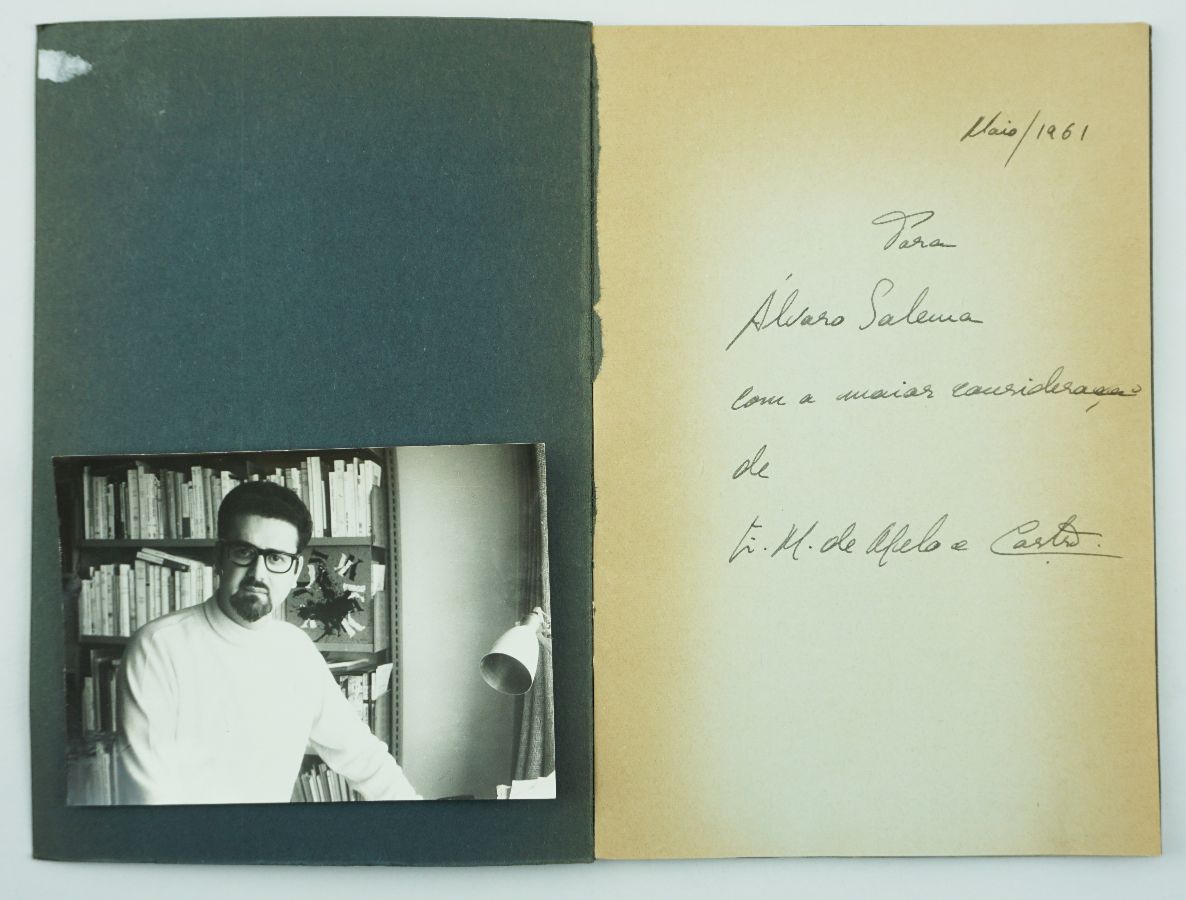 Maio/1961
Para
Álvaro Salema
com a maior consideração
de
E. M. de Melo e Castro.